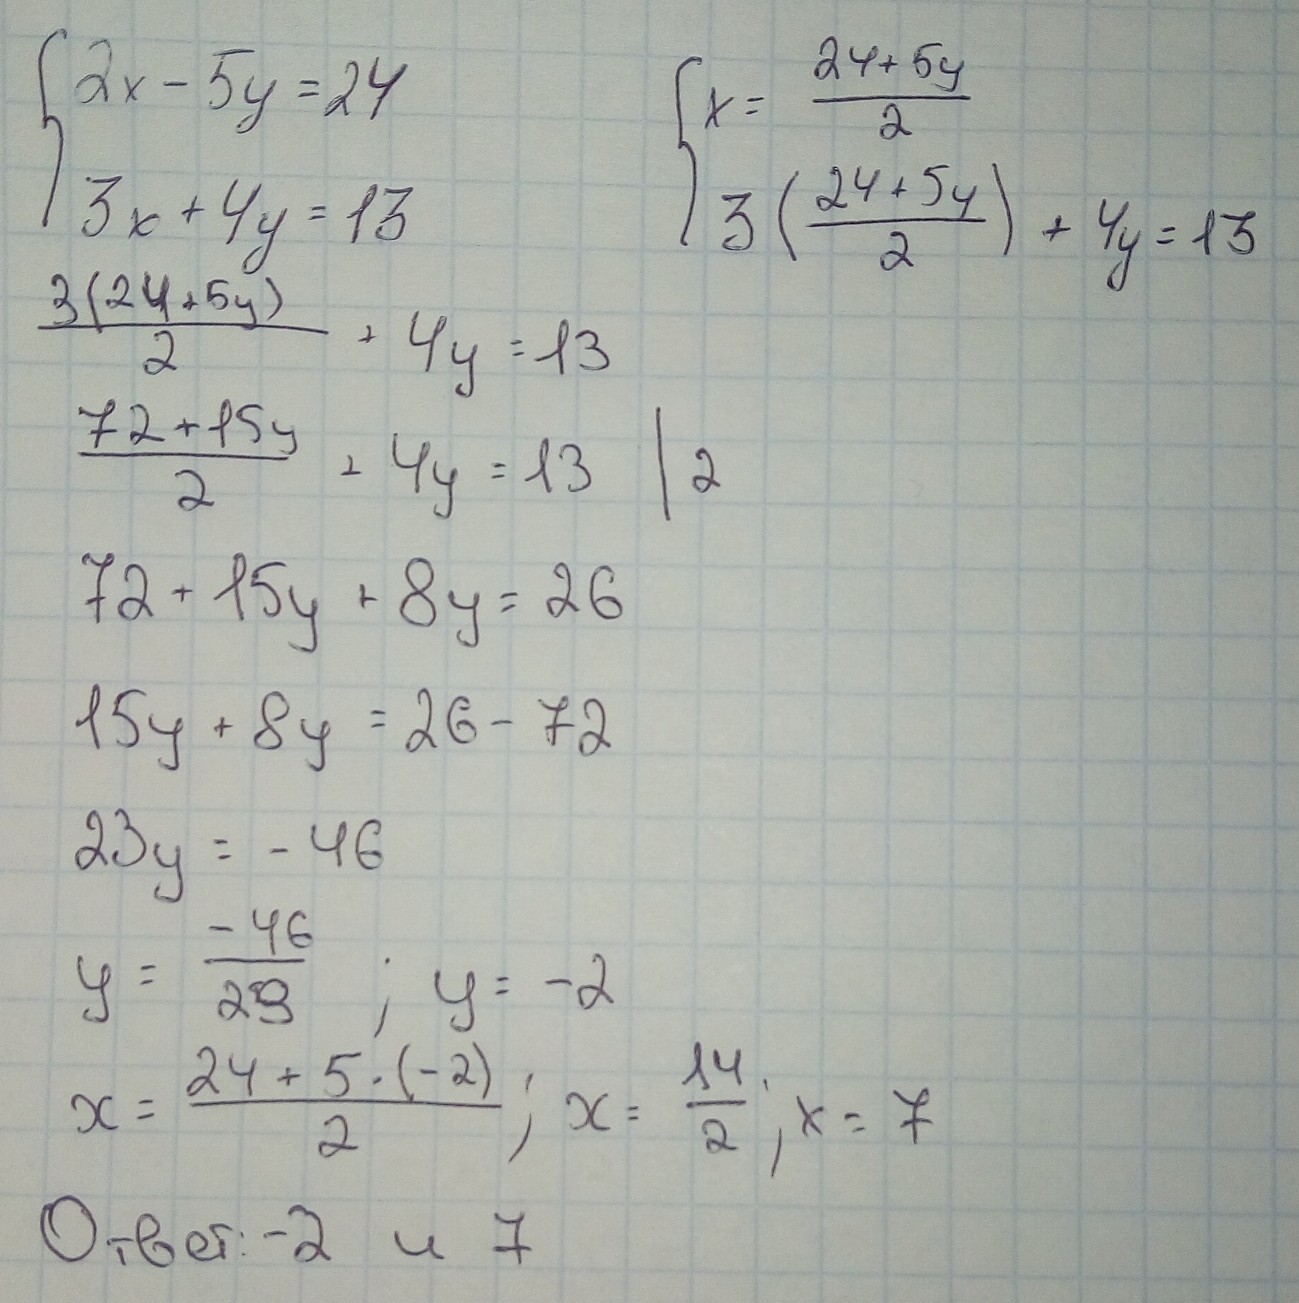 {2x - 5y = 24
3x + 4y = 13
{x = (24+5y)/2
3((24+5y)/2) + 4y = 13
3(24+5y)/2 + 4y = 13
(72+15y)/2 + 4y = 13 | 2
72 + 15y + 8y = 26
15y + 8y = 26 - 72
23y = - 46
y = -46/23 ; y = -2
x = (24 + 5·(-2))/2 ; x = 14/2 ; x = 7
Ответ: -2 и 7